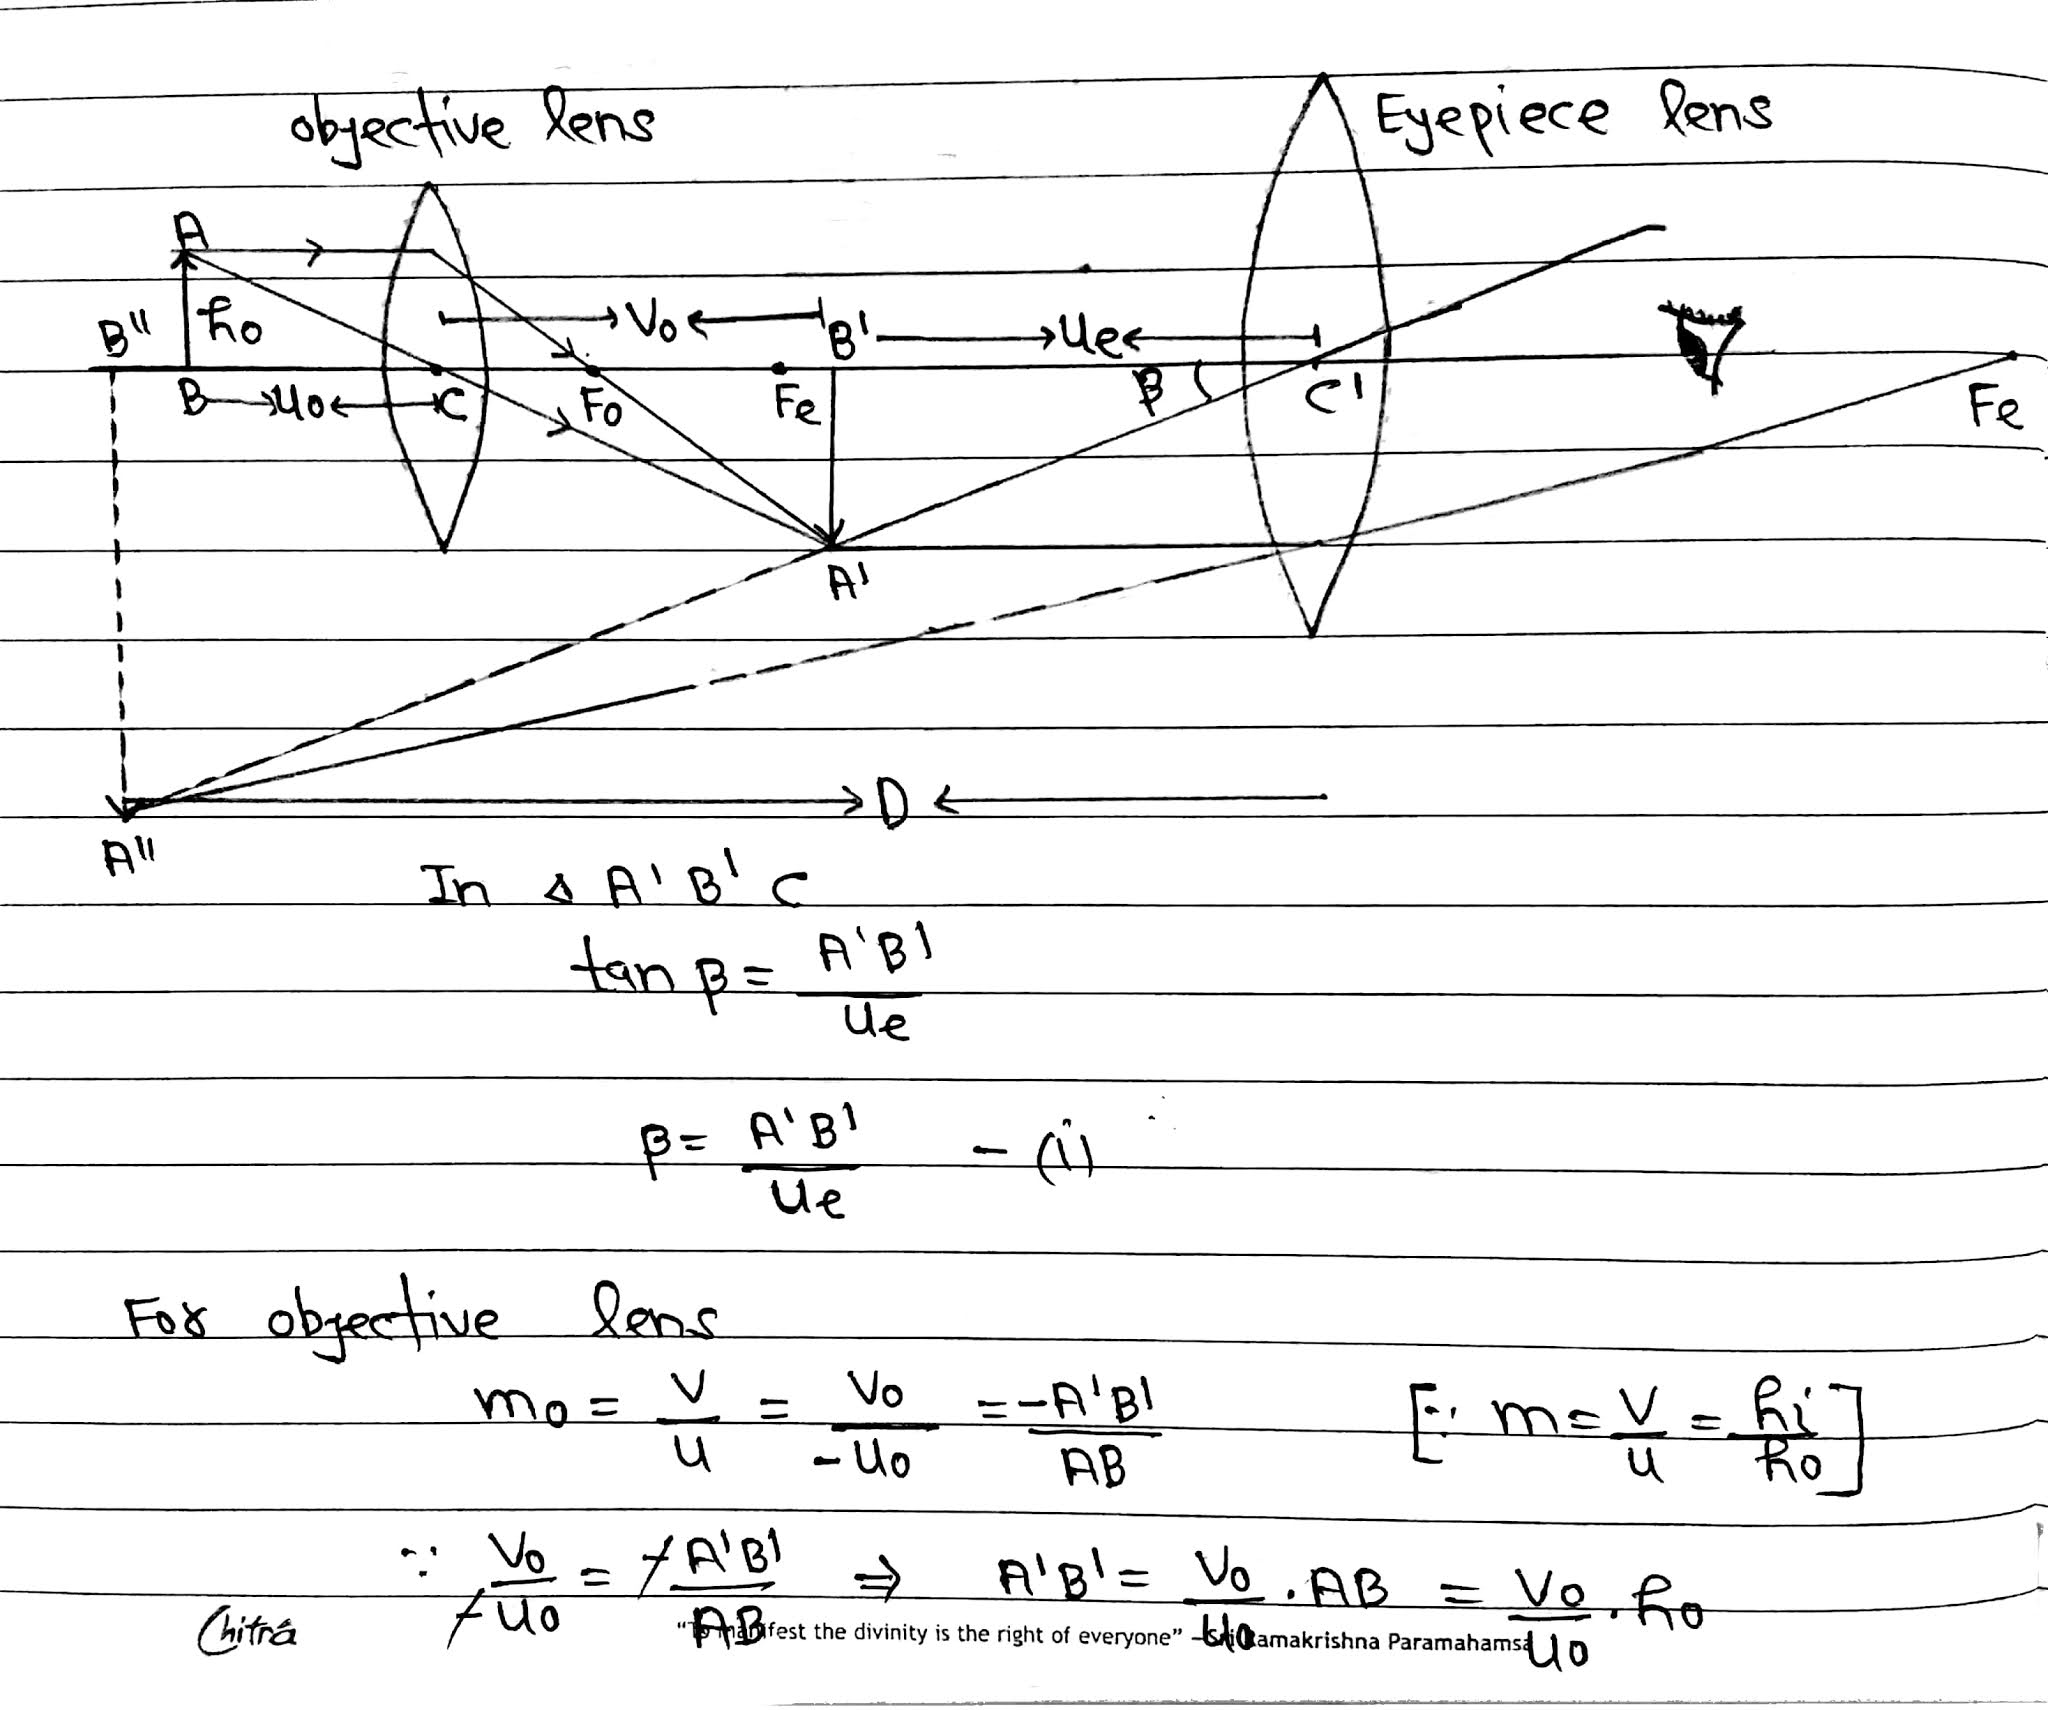 objective lens
Eyepiece lens
A
B" ho Vo B' ue
B uo C Fo Fe β C' Fe
A'
D
A"
In Δ A'B'C
tan β = A'B' / ue
β = A'B' / ue - (i)
For objective lens
mo = V/u = Vo/-uo = -A'B'/AB [∵ m = V/u = hi/ho]
∵ Vo/-uo = -A'B'/AB ⇒ A'B' = Vo/uo . AB = Vo/uo . ho
Chitra "To manifest the divinity is the right of everyone" – Sri Ramakrishna Paramahamsa